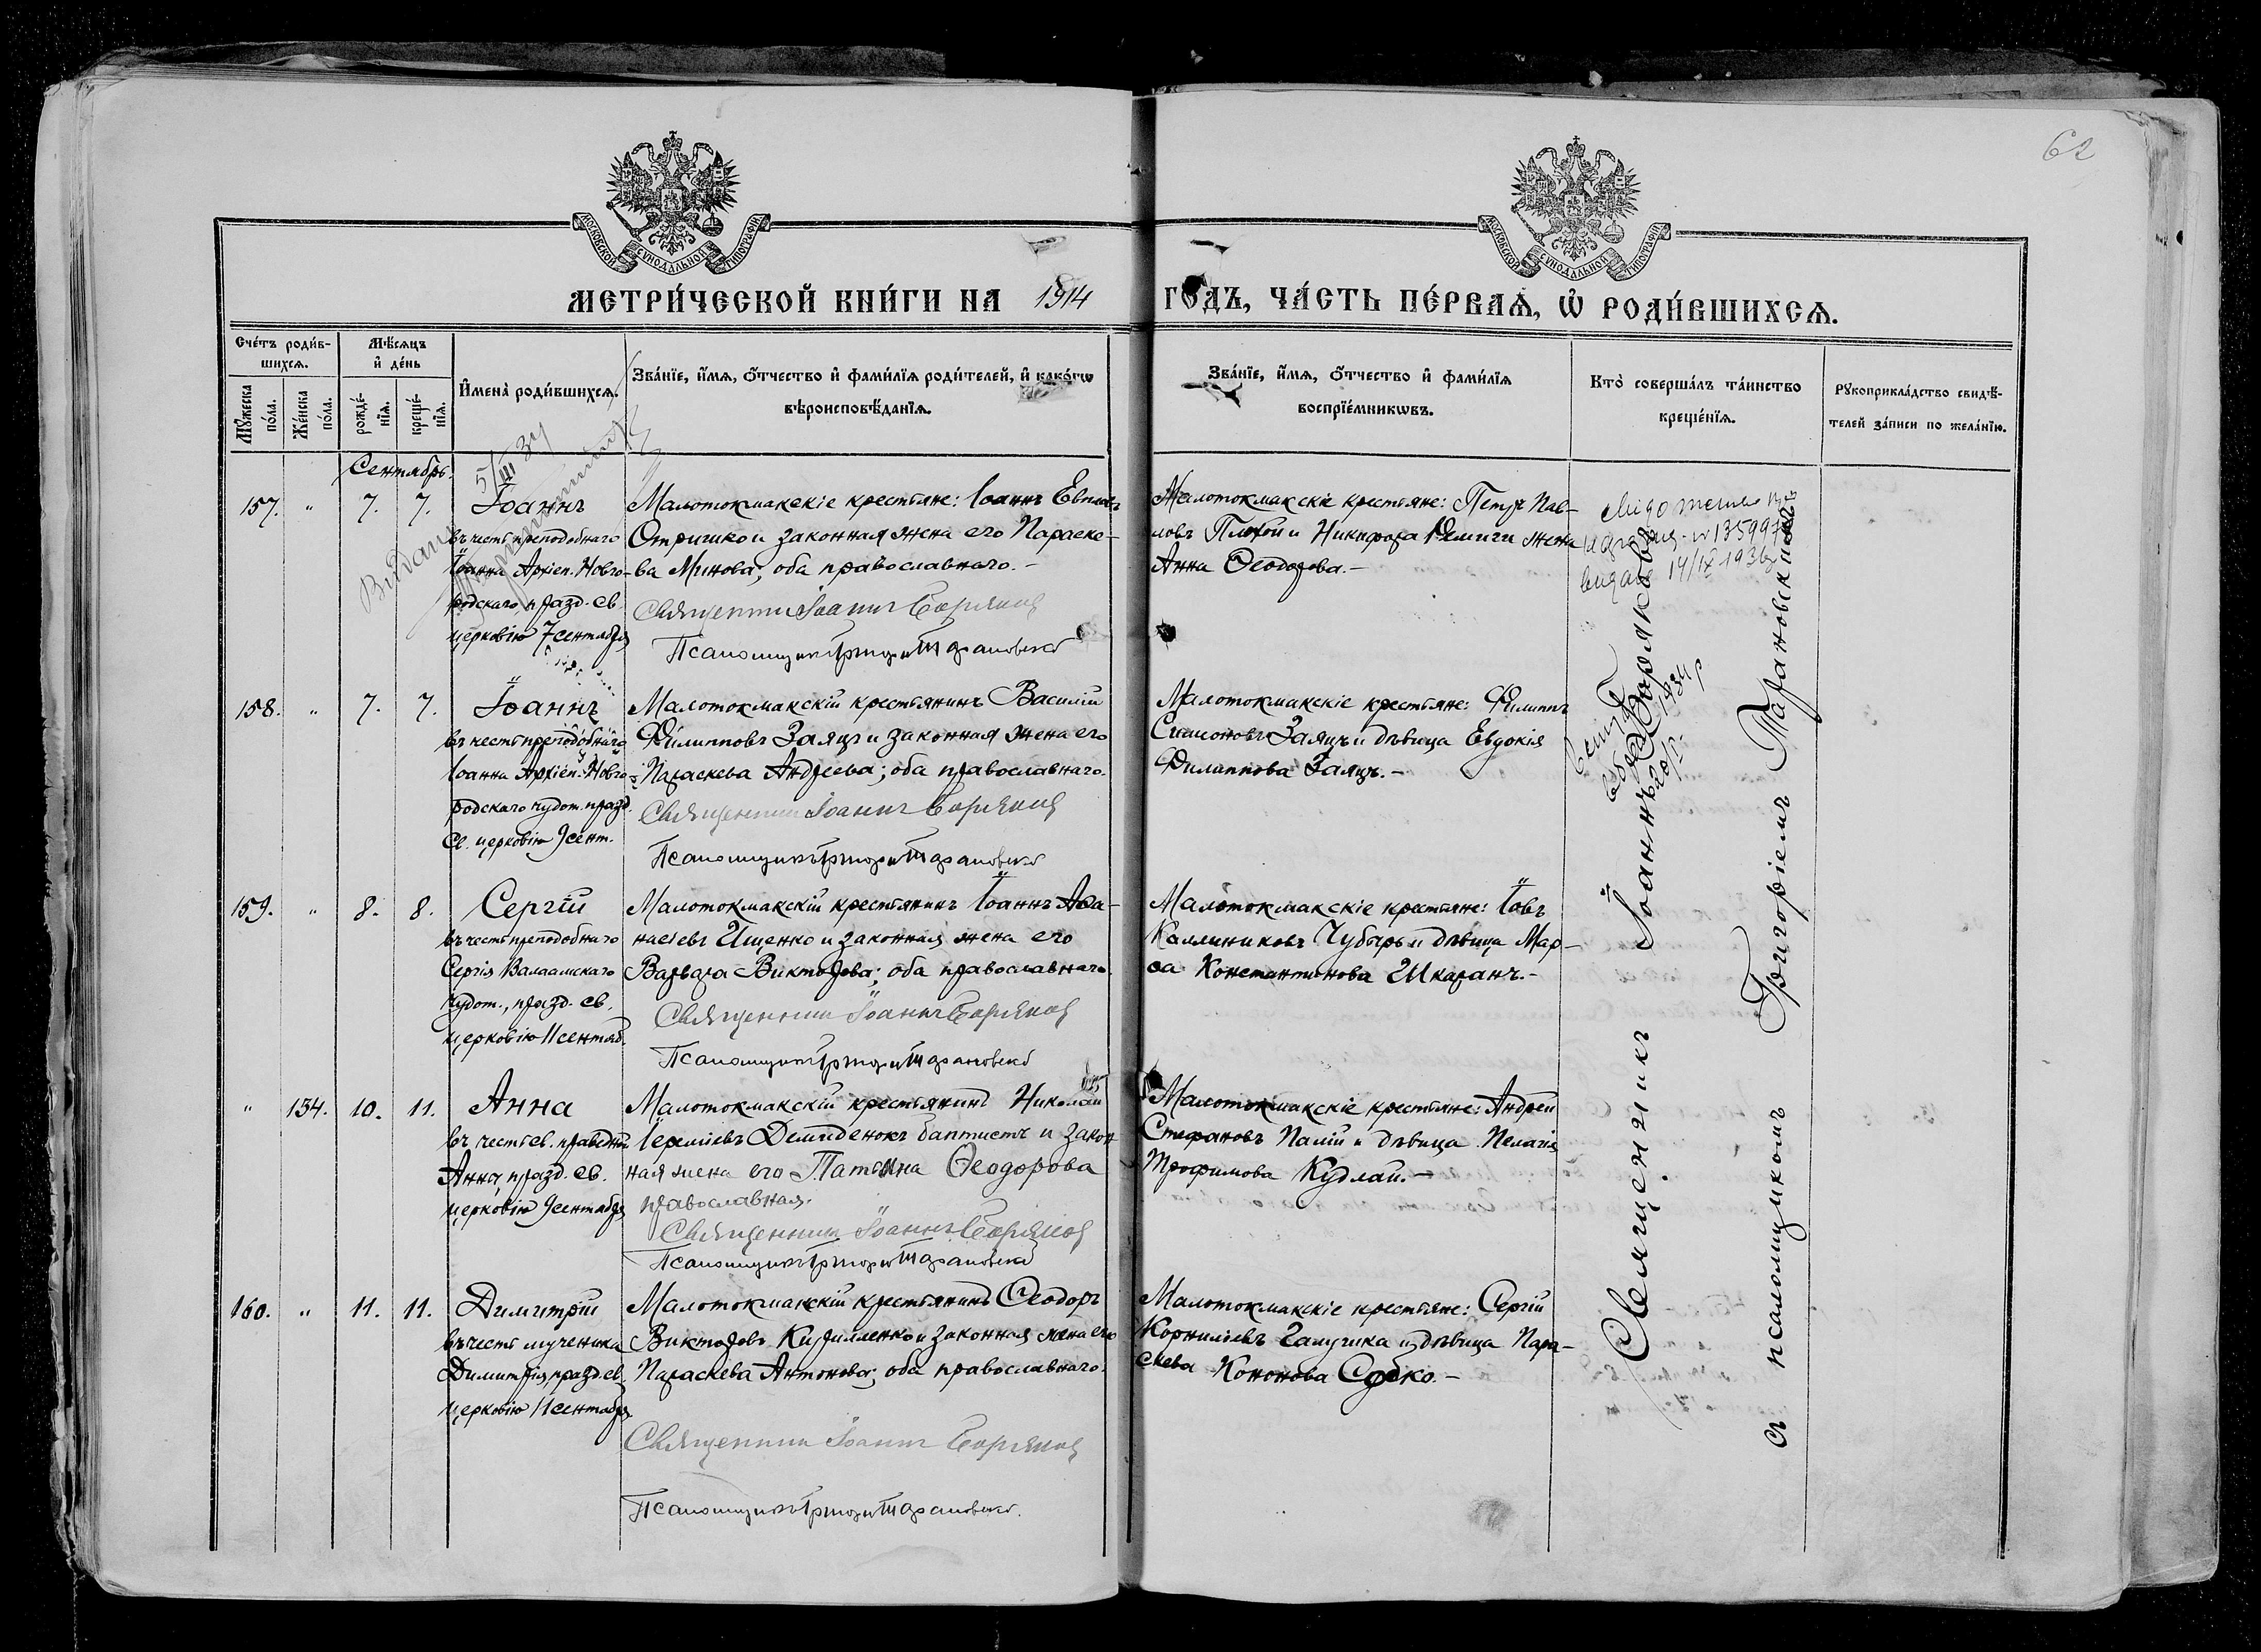 62
МОСКОВСКОЙ СѴНОДАЛЬНОЙ ТИПОГРАФІИ
МОСКОВСКОЙ СѴНОДАЛЬНОЙ ТИПОГРАФІИ
МЕТРИ́ЧЕСКОЙ КНИ́ГИ НА 1914 ГОДЪ, ЧА́СТЬ ПЕ́РВАѦ, Ѡ҆ РОДИ́ВШИХСѦ.
Сче́тъ роди́в-
шихсѧ.
Мꙋ́жеска по́ла.
Же́нска по́ла.
Мѣ́сѧцъ
и҆ де́нь
рожде́-
нїѧ.
креще́-
нїѧ.
И҆мена̀ роди́вшихсѧ.
Зва́нїе, и҆́мѧ, ѻ҆́тчество и҆ фами́лїѧ роди́телей, и҆ како́гѡ
вѣроисповѣ́данїѧ.
Зва́нїе, и҆́мѧ, ѻ҆́тчество и҆ фами́лїѧ
воспрїе́мникѡвъ.
Кто̀ соверша́лъ та́инство
креще́нїѧ.
Рꙋкоприкла́дство свидѣ́-
телей за́писи по жела́нїю.
Сентябрь.
157. " 7. 7.
Іоаннъ
въ честь преподобнаго
Іоанна Архіеп. Новго-
родскаго, празд. св.
церковію 7 сентября
Малотокмакскіе крестьяне: Іоаннъ
Отришко и законная жена его Параске-
ва Минова, оба православнаго.-
Священникъ Іоаннъ Боряковъ
Псаломщикъ Григорій Тарановскій
Малотокмакскіе крестьяне: Петръ Пав-
ловъ Плохой и Никифора жена
Анна Ѳеодорова.-
выдано 14/IX 1936
158. " 7. 7.
Іоаннъ
въ честь преподобнаго
Іоанна Архіеп. Новго-
родскаго чудот. празд.
Св. церковію 7 сент.
Малотокмакскій крестьянинъ Василій
Филипповъ Заяцъ и законная жена его
Параскева Андреева; оба православнаго.
Священникъ Іоаннъ Боряковъ
Псаломщикъ Григорій Тарановскій
Малотокмакскіе крестьяне: Филиппъ
Симоновъ Заяцъ и дѣвица Евдокія
Филиппова Заяцъ.-
159. " 8. 8.
Сергій
въ честь преподобнаго
Сергія Валаамскаго
чудот., празд. св.
церковію 11 сентяб.
Малотокмакскій крестьянинъ Іоаннъ Аѳа-
насіевъ Ищенко и законная жена его
Варвара Викторова; оба православнаго.
Священникъ Іоаннъ Боряковъ
Псаломщикъ Григорій Тарановскій
Малотокмакскіе крестьяне: Іовъ
Каллиниковъ Чубырь и дѣвица Мар-
ѳа Константинова Шкаранъ.-
" 154. 10. 11.
Анна
въ честь св. праведной
Анны, празд. св.
церковію 9 сентября
Малотокмакскій крестьянинъ Николай
Іереміевъ Демиденокъ баптистъ и закон-
ная жена его Татьяна Ѳеодорова
православная.
Священникъ Іоаннъ Боряковъ
Псаломщикъ Григорій Тарановскій
Малотокмакскіе крестьяне: Андрей
Стефановъ Палій и дѣвица Пелагія
Трофимова Кудлай.-
160. " 11. 11.
Димитрій
въ честь мученика
Димитрія, празд. св.
церковію 11 сентября
Малотокмакскій крестьянинъ Ѳеодоръ
Викторовъ Кирилленко и законная жена его
Параскева Антонова; оба православнаго.
Священникъ Іоаннъ Боряковъ
Псаломщикъ Григорій Тарановскій
Малотокмакскіе крестьяне: Сергій
Корниліевъ Галушка и дѣвица Пара-
скева Кононова Собко.-
Священникъ Іоаннъ Боряковъ
съ псаломщикомъ Григоріемъ Тарановскимъ